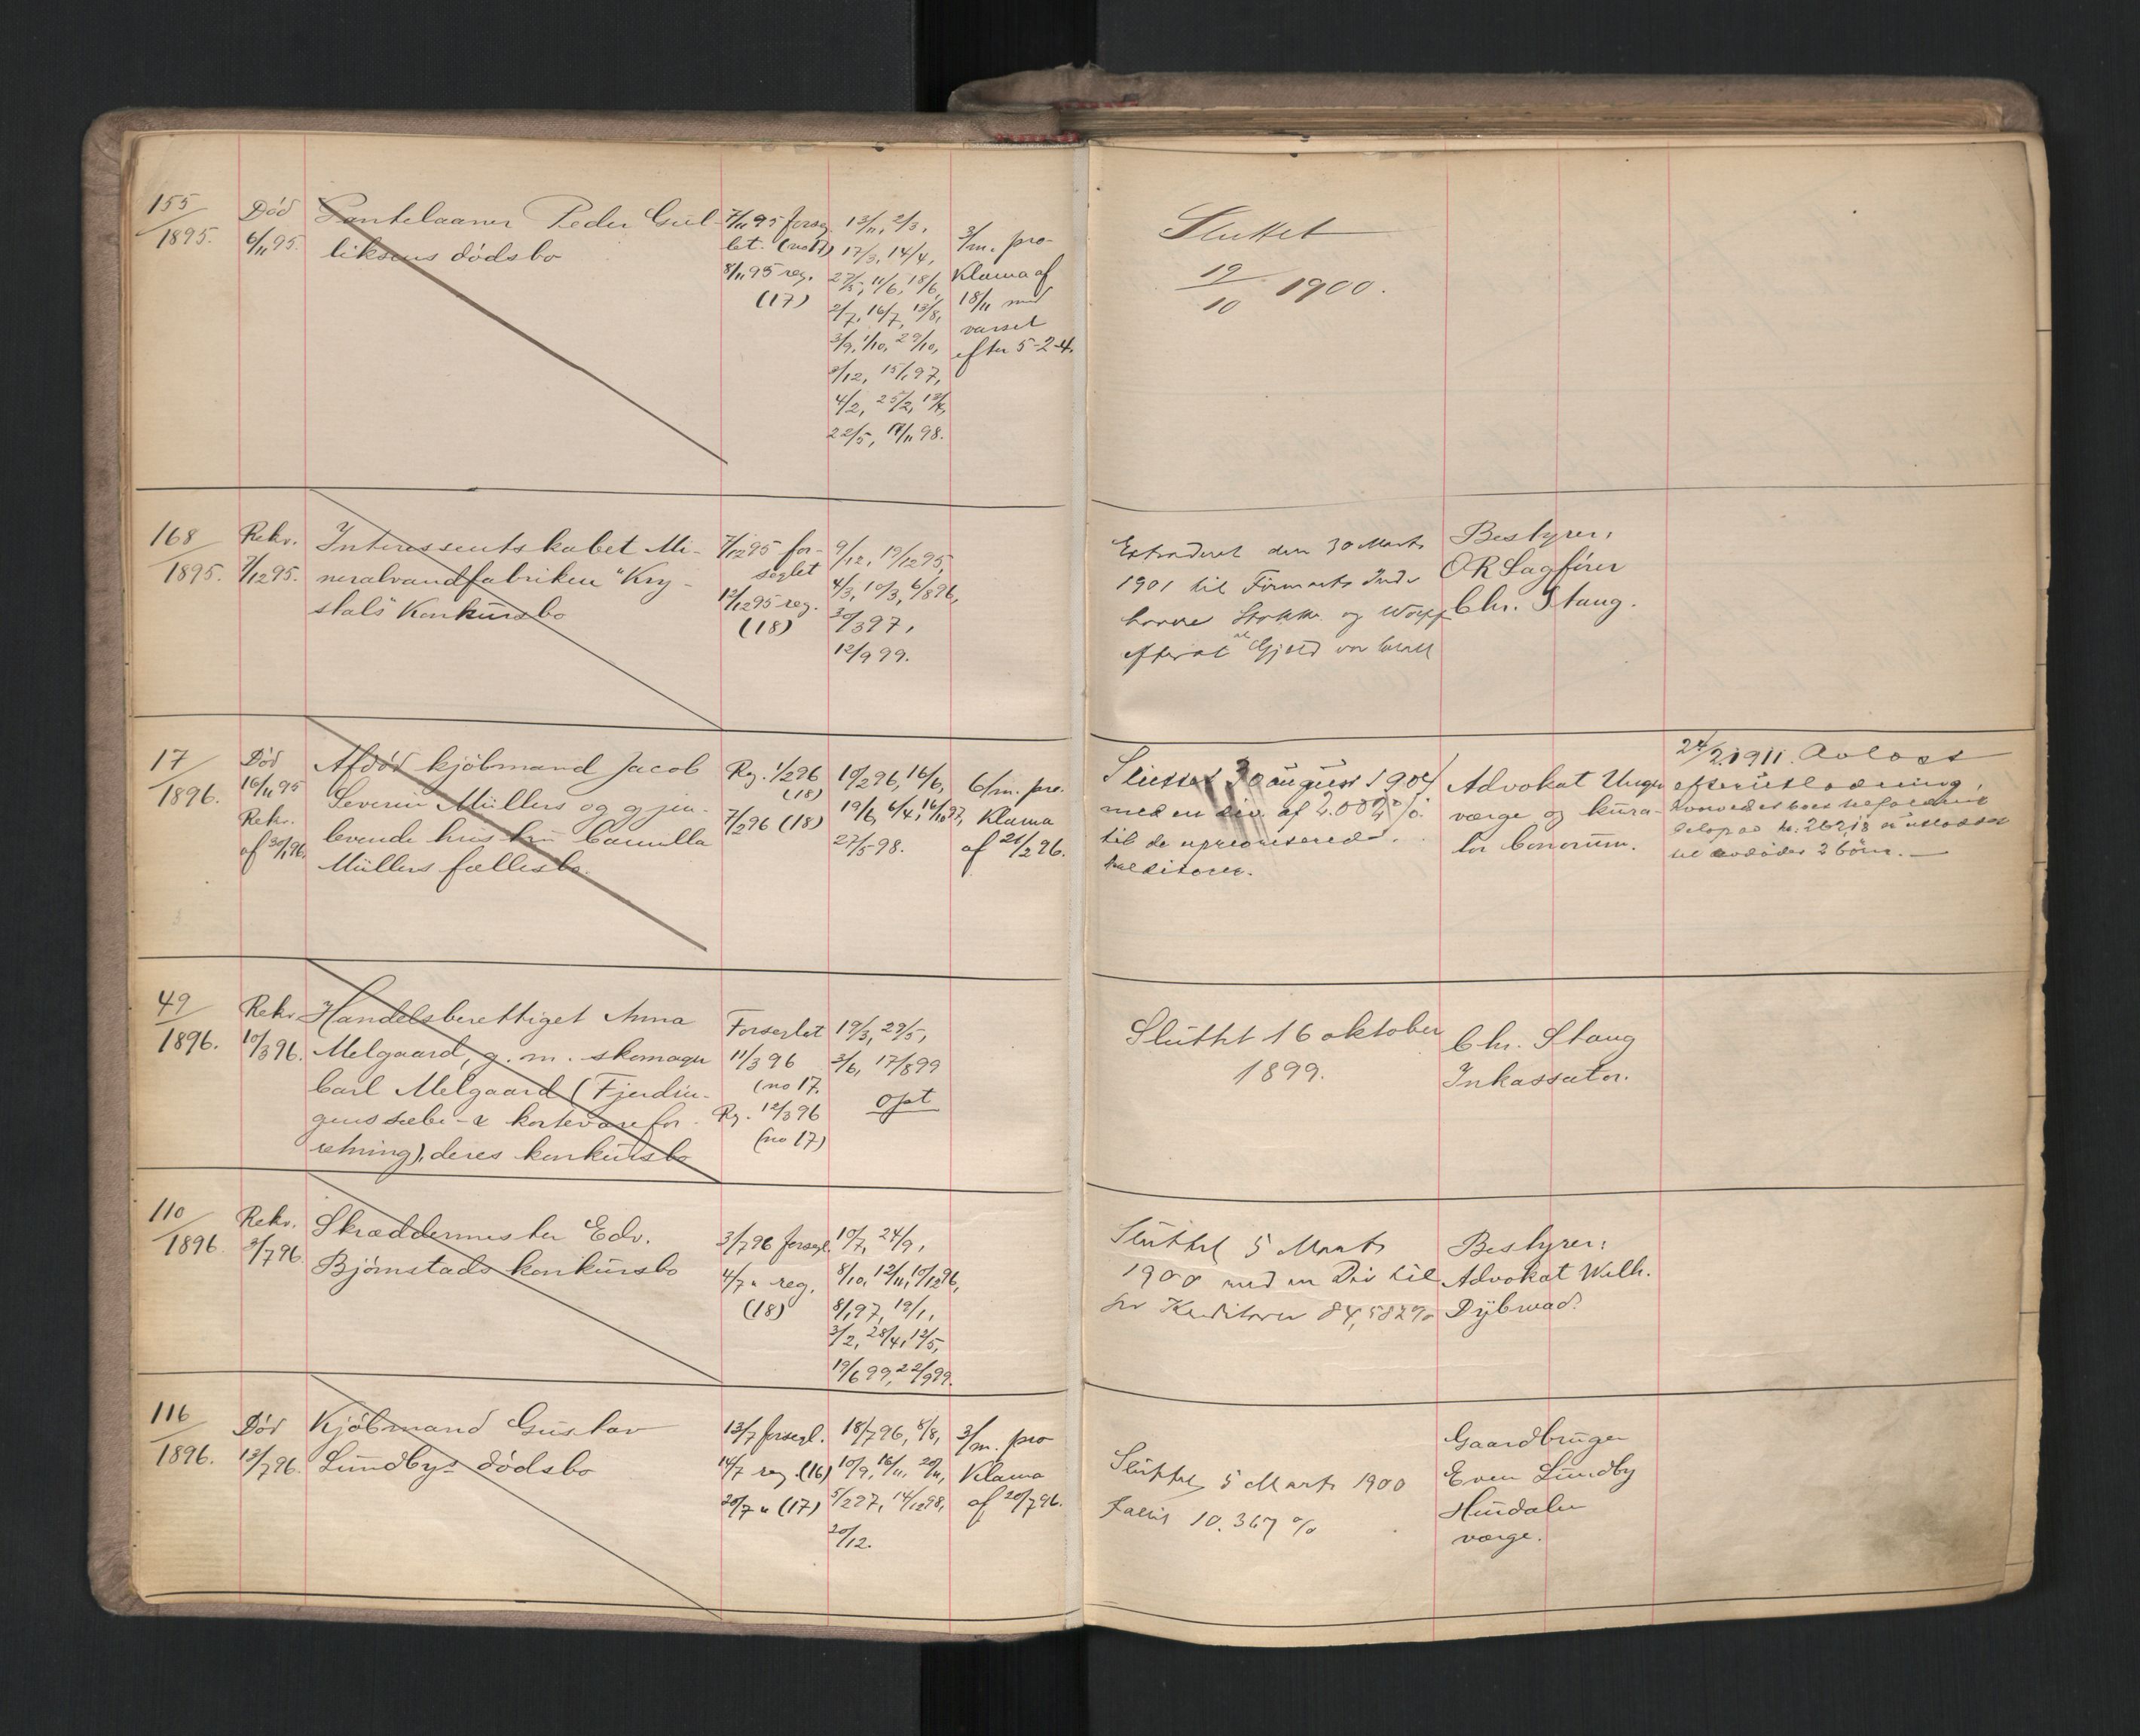 155/1895.
Död
6/11 95.
Pantelaaner Peder Gul-
liksens dödsbo
7/11 95 forseg-
let. (no 17)
8/11 95 reg.
(17)
13/11, 2/3,
17/3, 14/4,
27/5, 11/6, 18/6,
2/7, 16/7, 13/8,
3/9, 1/10, 29/10,
3/12, 15/1 97,
4/2, 25/2,
22/5, 17/11 98.
3/m. pro-
klama af
18/11 med
varsel
efter 5-2-4.
Sluttet
19/10 1900.
168/1895.
Rekv.
7/12 95.
Interessentskabet Mi-
neralvandfabriken "Kry-
stals" Konkürsbo
7/12 95 for-
seglet
12/12 95 reg.
(18)
9/12, 19/12 95,
4/3, 10/3, 6/8 96,
30/3 97,
12/9 99.
Extraderet den 30 Marts
1901 til Firmaets Inde
havere og
efterat al Gjeld var betalt
Bestyrer:
OR Sagförer
Chr. Stang.
17/1896.
Död
16/11 95
Rekv.
af 30/1 96.
Afdöd kjöbmand Jacob
Severin Müllers og gjen-
levende hustrü Camilla
Müllers fællesbo.
Reg. 1/2 96
(18)
7/2 96 (18)
10/2 96, 16/6,
19/6, 6/4, 16/10 97,
27/5 98.
6/m. pro-
klama
af 21/2 96.
Sluttet 30 august 1904
med en div. af
til de upriorterede
kreditorer.
Advokat Unger
værge og küra-
tor bonorüm.
24/2 1911. Avlast
efterütlodning,
hvorved det boet tilfaldne
belöp av kr. 262,18 er utloddet
til avdödes 2 börn. —
49/1896.
Rekv.
10/3 96.
Handelsberettiget Anna
Melgaard, g. m. skomager
Carl Melgaard (Fjerdin-
gens sæbe- & kortevarefor-
retning), deres konkürsbo
Forseglet
11/3 96
(no 17.
Rg. 12/3 96
(no 17)
19/3, 29/5,
3/6, 17/8 99
opt
Slüttet 16 oktober
1899.
Chr. Stang
Inkassator.
110/1896
Rekv.
3/7 96.
Skræddermester Edv.
Björnstads konkürsbo
3/7 96 forsegl.
4/7 " reg.
(18)
10/7, 24/9,
8/10, 12/11, 10/12 96,
8/1 97, 19/1,
3/2, 28/4, 12/5,
19/6 99, 22/9 99.
Slüttet 5 Marts
1900 med en Div til
Kreditorer 84,582%
Bestyrer:
Advokat Wilh.
Dybwad.
116/1896.
Död
13/7 96.
Kjöbmand Güstav
Lündbys dödsbo
13/7 forsegl.
14/7 reg. (16)
20/7 " (17)
18/7 96, 8/8,
10/9, 16/11, 20/11,
5/2 97, 14/12 98,
20/12.
3/m. pro
klama
af 20/7 96.
Slüttet 5 Marts 1900
10.367 %
Gaardbrüger
Even Lündby
Hündalen
værge.